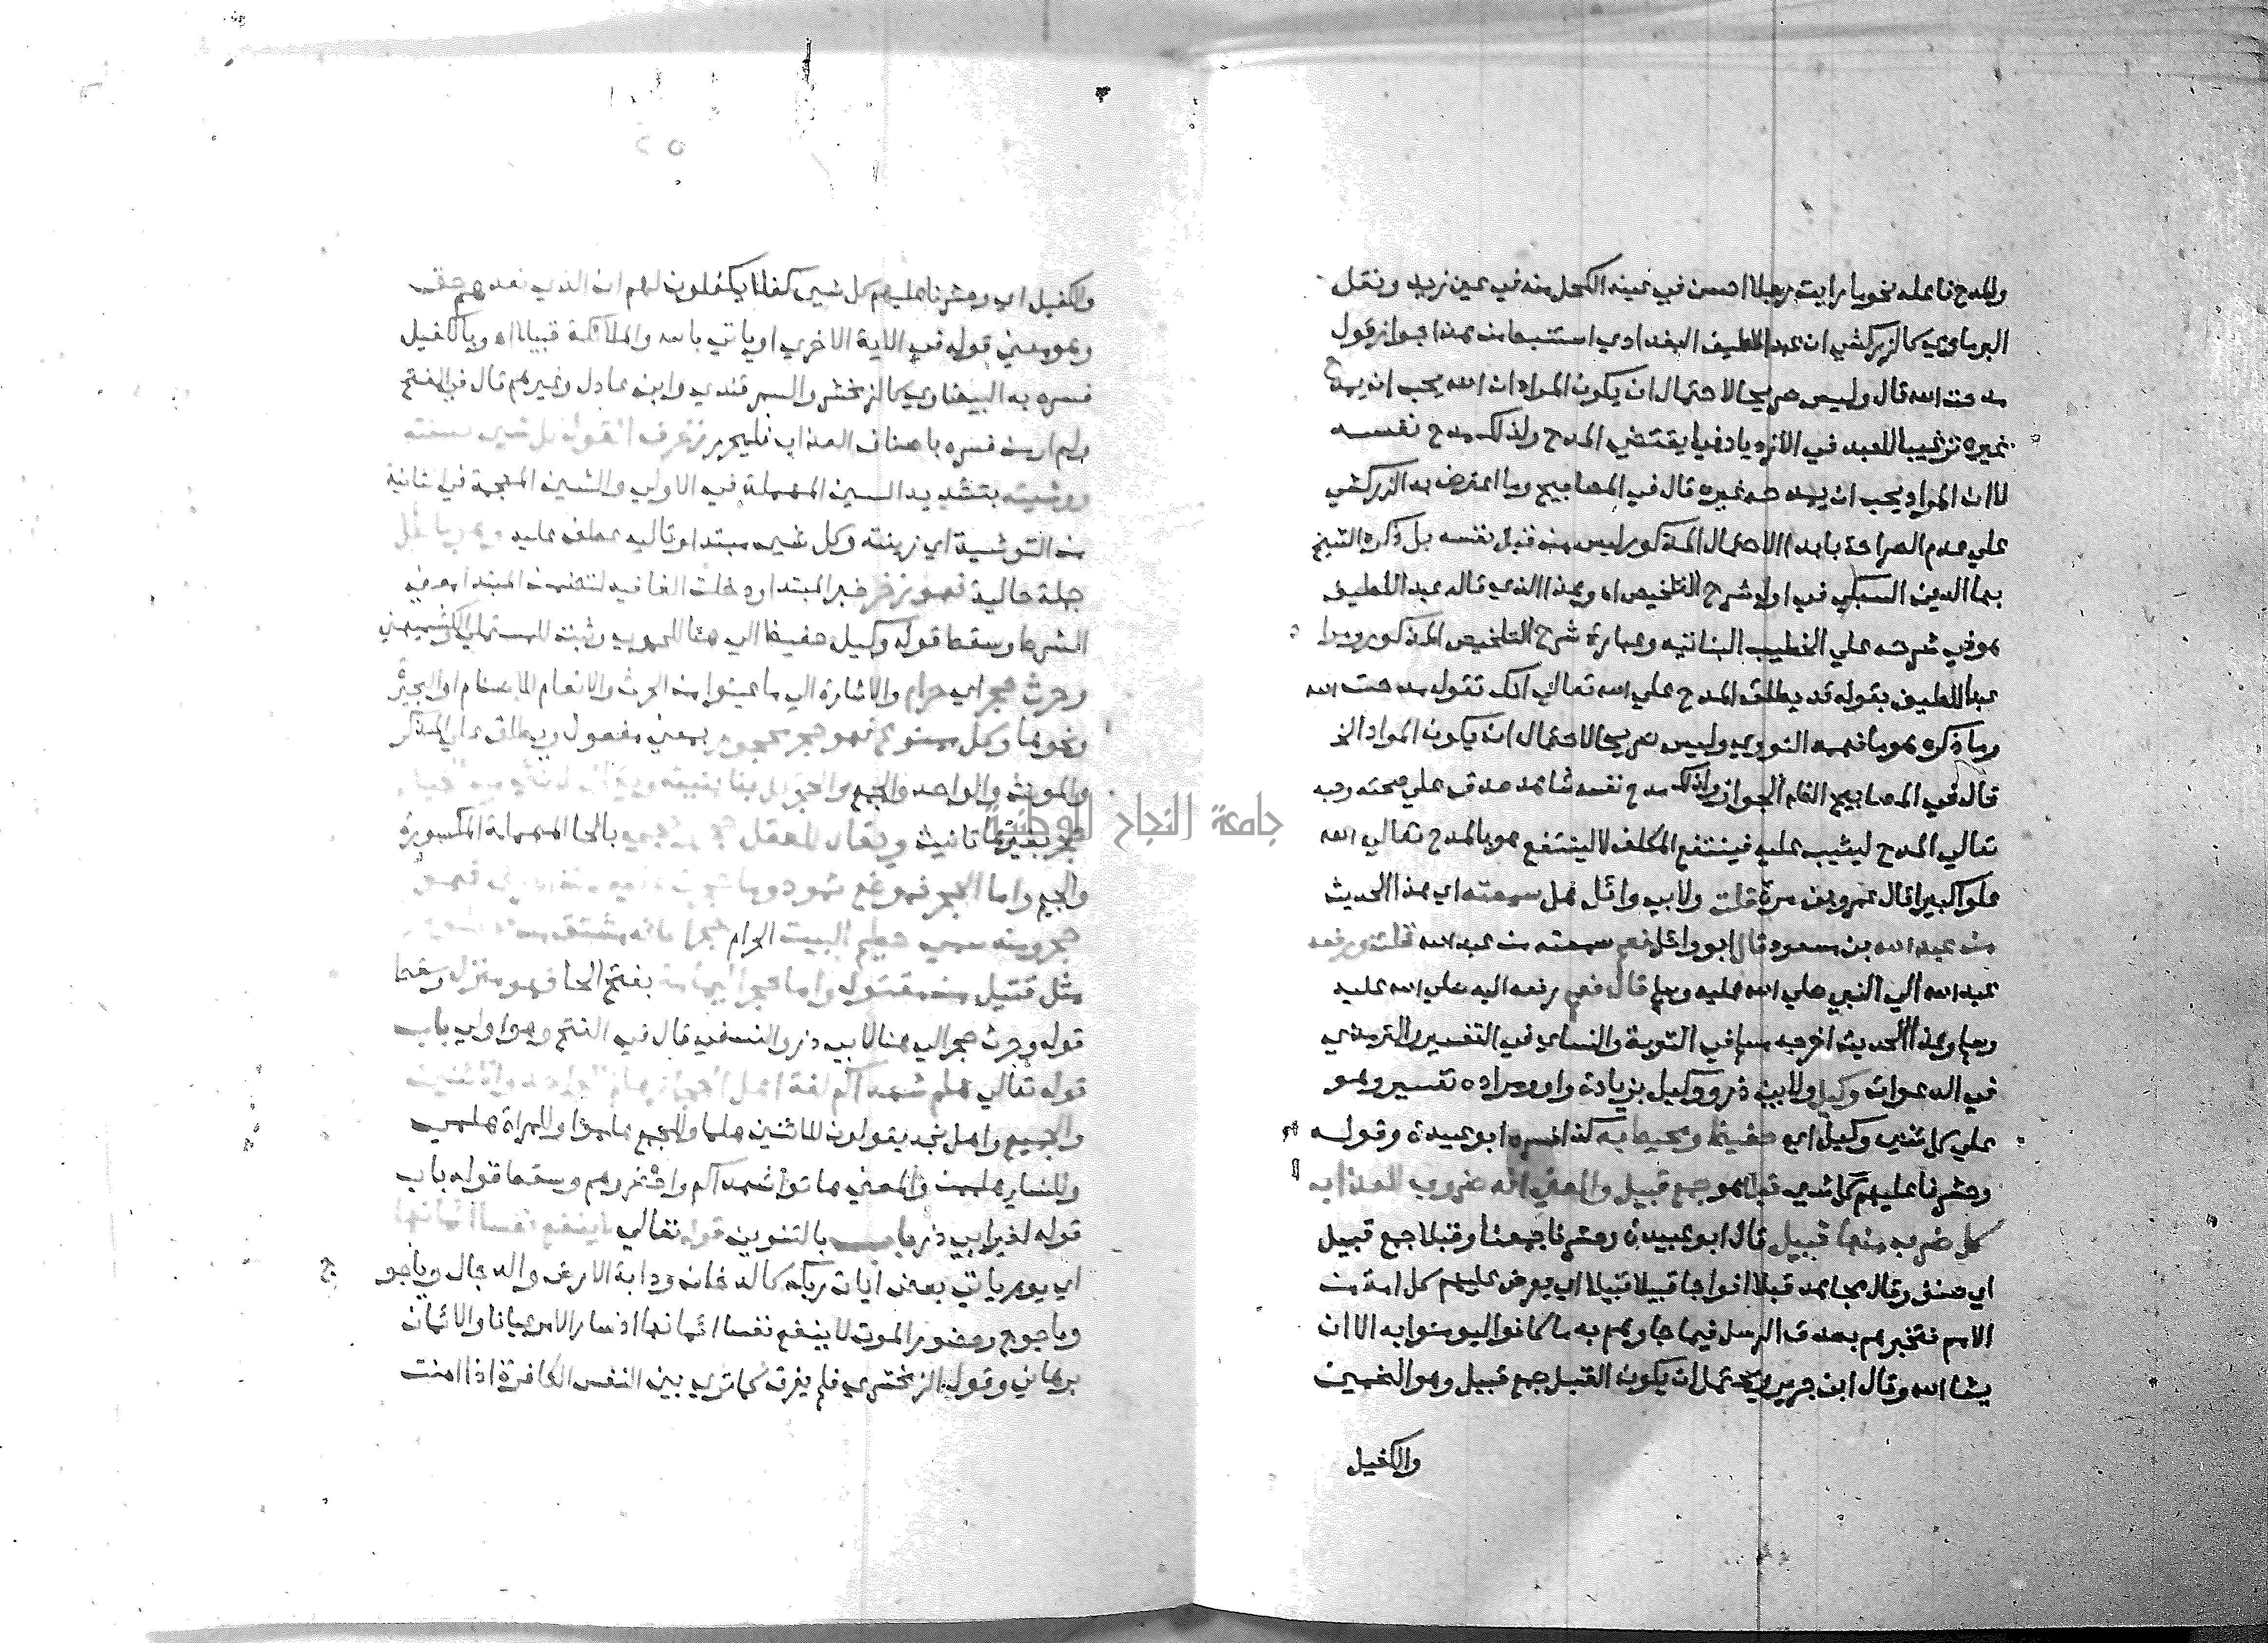 والمدح فاعله نحو ما رايت رجلا احسن في عينه الكحل منه في عين زيد ونقل
البرماوي كالزركشي ان عبد اللطيف البغدادي استنبط من هذا جواز قول
مدحت الله قال وليس صريحا لاحتمال ان يكون المراد ان الله يحب ان يمدح
غيره ترغيبا للعبد في الازدياد فيما يقتضي المدح ولذلك مدح نفسه
لا ان المراد يحب ان يمدحه غيره قال في المصابيح وما اعترض به الزركشي
علي عدم الصراحة بابدا الاحتمال المذكور ليس من قبل نفسه بل ذكره الشيخ
بها الدين السبكي في اول شرح التلخيص اه وهذا الذي قاله عبد اللطيف
هو في شرحه علي الخطيب النباتيه وعبارة شرح التلخيص المذكور ومرا
عبد اللطيف بقوله قد يطلق المدح علي الله تعالي انك تقول مدحت الله
وما ذكره هو ما فهمه النووي وليس صريحا لاحتمال ان يكون المراد الخ
قال في المصابيح الظاهر الجواز ولذلك مدح نفسه شاهد صدق علي صحته وحبه
تعالي المدح ليثيب عليه فينتفع المكلف لا لينتفع هو بالمدح تعالي الله
علوا كبيرا قال عمرو بن مرة قلت ولابي وائل هل سمعته اي هذا الحديث
من عبد الله بن مسعود قال ابو وائل نعم سمعته من عبد الله قلت ورفعه
عبد الله الي النبي صلي الله عليه وسلم قال نعم رفعه اليه صلي الله عليه
وسلم وهذا الحديث اخرجه مسلم في التوبة والنساي في التفسير والترمذي
في الدعوات وكيل ولابي ذر ووكيل بزيادة واو ومراده تفسير وهو
علي كل شي وكيل اي حفيظ ومحيط به كذا فسره ابو عبيدة وقوله
وحشرنا عليهم كل شي قبلا هو جمع قبيل والمعني انه ضروب للعذاب
كل ضرب منها قبيل قال ابو عبيدة وحشرنا جمعنا وقبلا جمع قبيل
اي صنف وقال مجاهد قبلا افواجا قبيلا قبيلا اي يعرض عليهم كل امة من
الامم فتخبرهم بصدق الرسل فيما جاوهم به ما كانوا ليومنوا به الا ان
يشا الله وقال ابن جرير ويحتمل ان يكون القبل جمع قبيل وهو الضمين
والكفيل
والكفيل اي وحشرنا عليهم كل شي كفلا يكفلون لهم ان الذي نعدهم حق
وهو معني قوله في الاية الاخري او ياتي بالله والملائكة قبيلا اه وبالكفيل
فسره به البيضاوي كالزمخشري والسمرقندي وابن عادل وغيرهم قال في الفتح
ولم ار من فسره باصناف العذاب فليحرر زخرف القول كل شي حسنته
ووشيته بتشديد السين المهملة في الاولي والشين المعجمة في ثانية
من التوشية اي زينته وكل شي مبتدا وتاليه عطف عليه
جملة حالية فهو زخرف خبر المبتدا ودخلت الفا فيه لتضمن المبتدا معني
الشرط وسقط قوله وكيل حفيظ الي هنا للحموي وثبت للمستملي والكشميهني
وحرث حجر اي حرام والاشارة الي ما عينوا من الحرث والانعام للاصنام او البحيرة
ونحوها وكل ممنوع فهو حجر محجور بمعني مفعول ويطلق علي المذكر
والمونث والواحد والجمع والحجر كل بنا بنيته
حجر بغير ها تانيث ويقال للعقل بالحا المهملة المكسورة
والجيم واما الحجر فموضع ثمود وما
حجر ومنه سمي حطيم البيت الحرام حجرا كانه مشتق من
مثل قتيل من مقتول واما حجر اليمامة بفتح الحا فهو منزل وسقط
قوله وحرث حجر الي هنا لابي ذر والنسفي قال في الفتح وهو اولي باب
قوله تعالي هلم شهداكم لغة اهل الحجاز هلم للواحد والاثنين
والجميع واهل نجد يقولون للاثنين هلما وللجمع هلموا وللمراة هلمي
وللنسا هلممن والمعني هاتوا شهداكم واحضروهم وسقط قوله باب
قوله لغير ابي ذر باب بالتنوين قوله تعالي لا ينفع نفسا ايمانها
اي يوم ياتي بعض ايات ربك كالدخان ودابة الارض والدجال وياجوج
وماجوج وحضور الموت لا ينفع نفسا ايمانها اذ صار الامر عيانا والايمان
برهاني وقول الزمخشري فلم يفرق كما تري بين النفس الكافرة اذا امنت
جامعة النجاح الوطنية